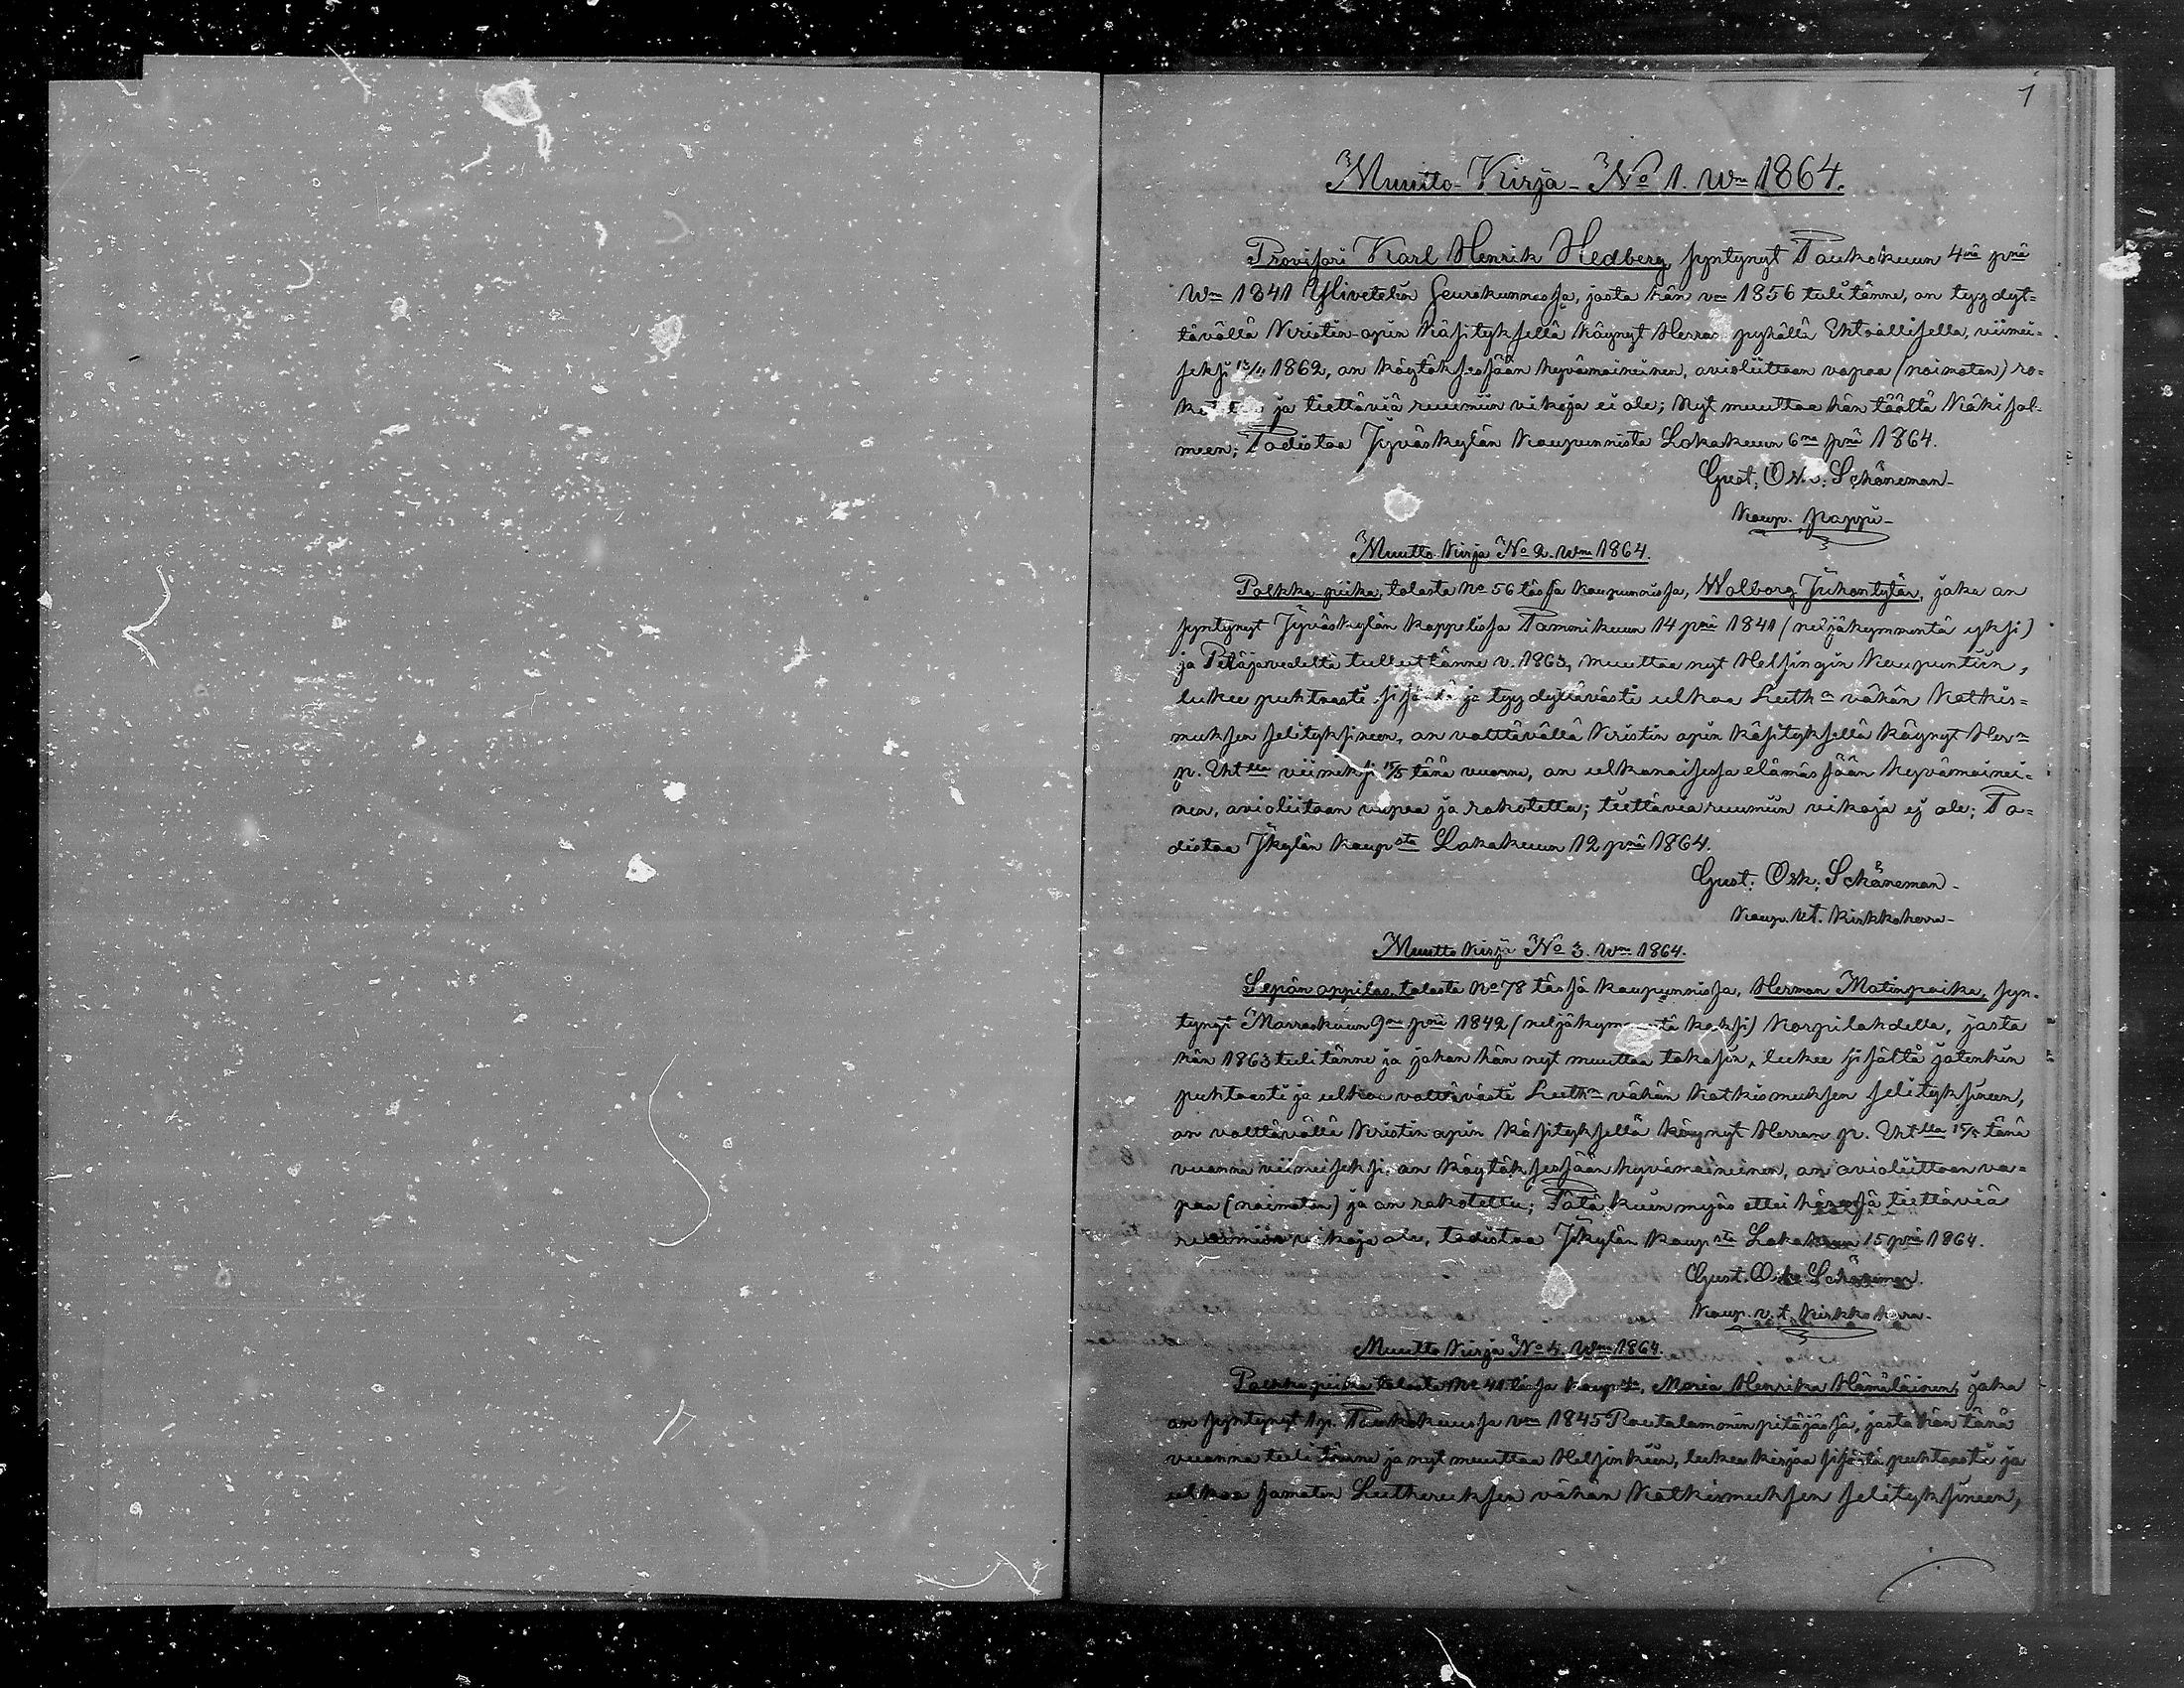 1
Muutto-Kirja-No 1. wna 1864.
Provisori Karl Henrik Hedberg, syntynyt Toukokuun 4nä pnä
Wna 1841 Ylivetelin Seurakunnassa, josta hän vna 1856 tuli tänne, on tyydyt=
tävällä Kristin-opin Käsityksellä käynyt Herran pyhällä Ehtoollisella, viimei=
seksi 1862, on käytöksessään hyvämaineinen, avioliittoon vapaa (naimaton) ro=
ja tiettäviä ruumiin vikoja ei ole; Nyt muuttaa hän täältä Käkisal=
meen; Todistaa Jyväskylän Kaupunnista Lokakuun 6na pnä 1864.
Gust. Osk. Schöneman-
Kaup. pappi-
Muutto-Kirja No 2. wna 1864.
Palkka-piika, talosta No 56 tässä Kaupunnissa, Walborg Juhontytär, joka on
syntynyt Jyväskylän kappelissa Tammikuun 14 pnä 1841 (neljäkymmentä yksi)
ja Petäjävedeltä tullut tänne v. 1863, muuttaa nyt Helsingin Kaupuntiin,
lukee puhtaasti sisältä ja tyydyttävästi ulkoa Luthn vähän Katkis=
muksen selityksineen, on välttävällä Kristin opin käsityksellä käynyt Hern
p. Ehtlla viimeksi 15/5 tänä vuonna, on ulkonaisessa elämässään hyvämainei=
nen, avioliitoon vapaa ja rokotettu; tiettäviä ruumiin vikoja ej ole; To=
distaa Jkylän kaupsta Lokakuun 12 pnä 1864.
Gust. Osk. Schöneman-
Kaup. vt. Kirkkoherra-
Muutto Kirja No 3. wna 1864.
Sepän oppilas, talosta No 78 tässä kaupunnissa, Herman Matinpoika, syn=
tynyt Marraskuun 9nä pnä 1842 (neljäkymmentä kaksi) Korpilahdella, josta
hän 1863 tuli tänne ja johon hän nyt muuttaa takasin, lukee sisältä jotenkin
puhtaasti ja ulkoa välttävästi Luthn vähän Katkismuksen selityksineen,
on välttävällä Kristin opin käsityksellä käynyt Herran p. Ehtlla 15/5 tänä
vuonna viimeiseksi, on käytöksessään hyvämaineinen, on avioliittoon va=
paa (naimaton) ja on rokotettu; Tätä kuin myös ettei hänessä tiettäviä
ruumiin vikoja ole, todistaa Jkylän kaupsta Lokakuun 15 pnä 1864.
Gust. Osk. Schöneman.
Kaup. v. t. Kirkkoherra-
Muutto Kirja No 4. wna 1864.
Palkka piika talosta No 41 tässä kaupssa, Maria Henrika Hämäläinen, joka
on syntynyt 1 p. Toukokuussa vna 1845 Rautalammin pitäjässä, josta hän tänä
vuonna tuli tänne ja nyt muuttaa Helsinkiin, lukee kirjaa sisältä puhtaasti ja
ulkoa samaten Lutheruksen vähän Katkismuksen selityksineen,